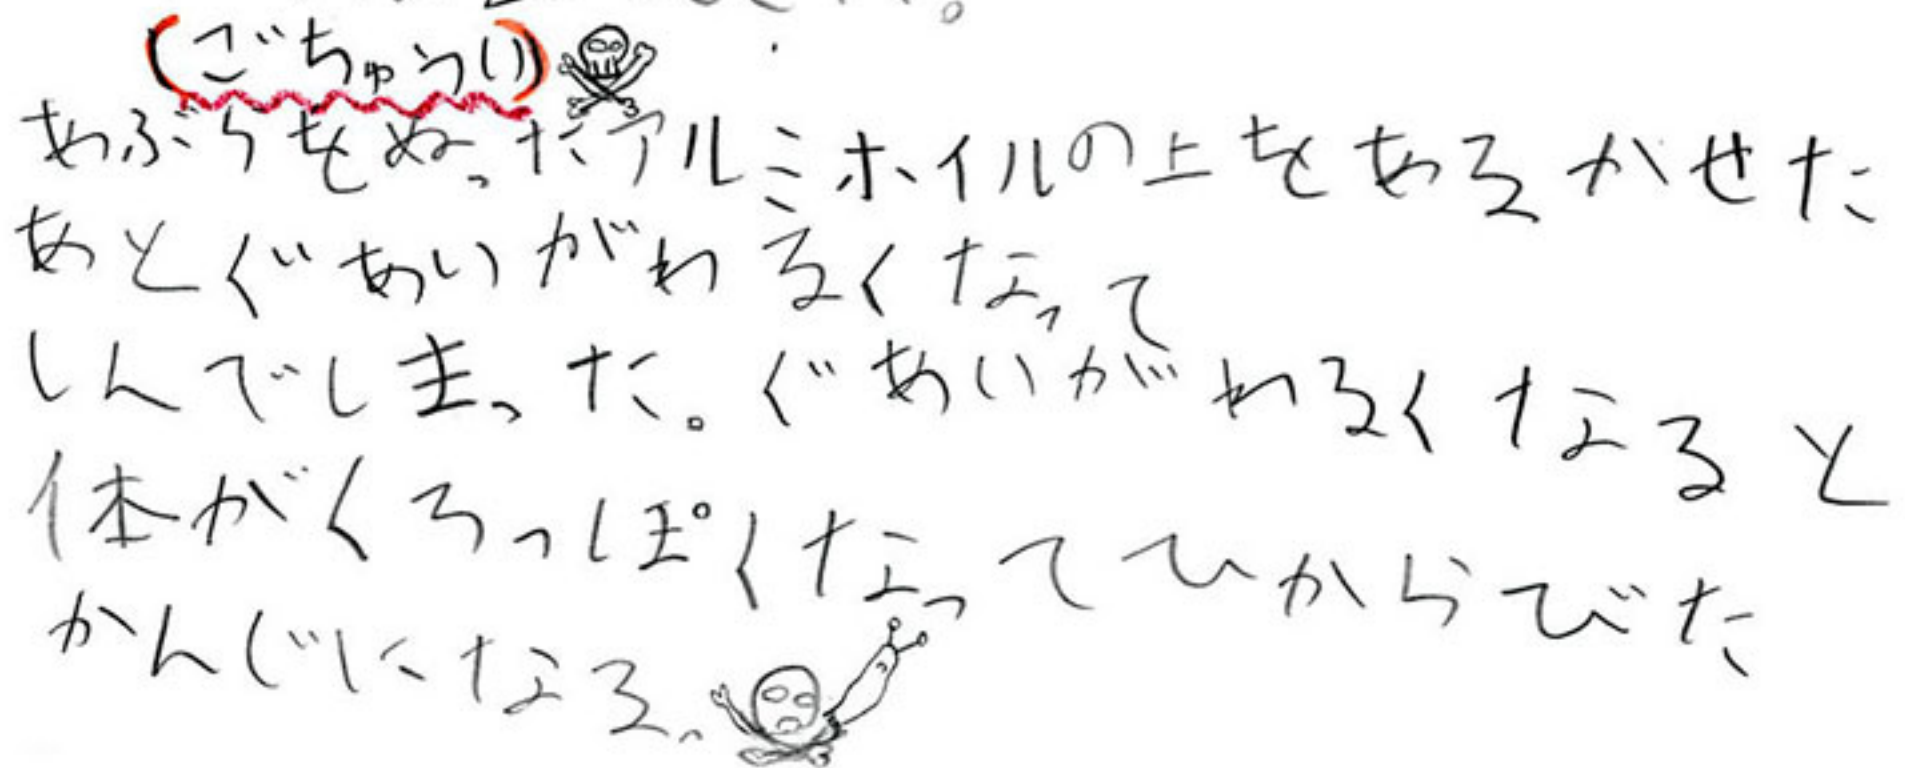 (ごちゅうい)
あぶらをぬったアルミホイルの上をあるかせた
あとぐあいがわるくなって
しんでしまった。ぐあいがわるくなると
体がくろっぽくなってひからびた
かんじになる、